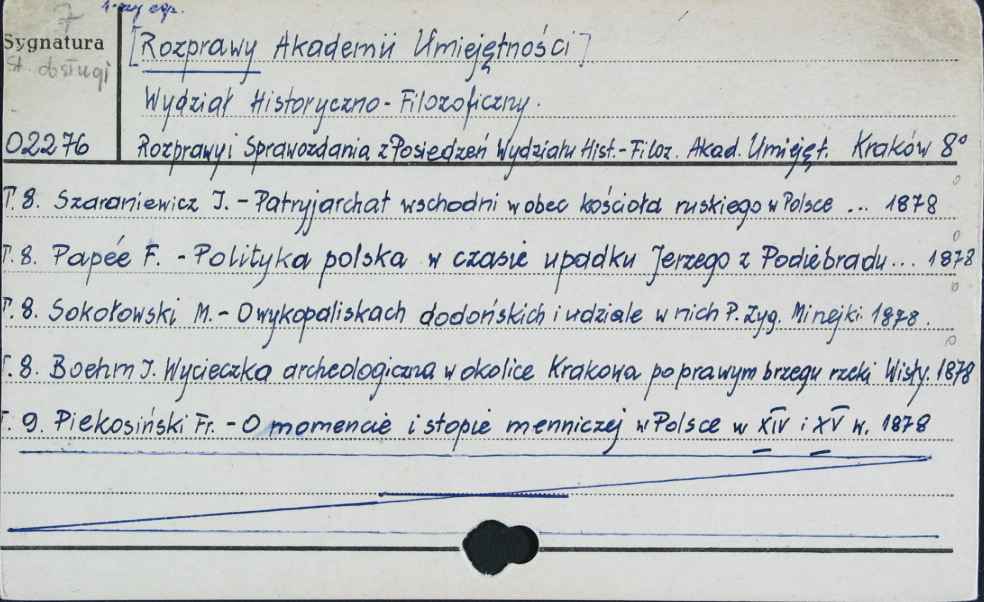 7 1-szy egz.
Sygnatura
st. obsługi
[Rozprawy Akademii Umiejętności]
Wydział Historyczno-Filozoficzny.
02276
Rozprawy i Sprawozdania z Posiedzeń Wydziału Hist.-Filoz. Akad. Umiejęt. Kraków 8°
T. 8. Szaraniewicz I. - Patryjarchat wschodni wobec kościoła ruskiego w Polsce ... 1878
T. 8. Papée F. - Polityka polska w czasie upadku Jerzego z Podiebradu... 1878
T. 8. Sokołowski M. - O wykopaliskach dodońskich i udziale w nich P. Zyg. Minejki 1878.
T. 8. Boehm J. Wycieczka archeologiczna w okolice Krakowa po prawym brzegu rzeki Wisły. 1878
T. 9. Piekosiński Fr. - O momencie i stopie menniczej w Polsce w XIV i XV w. 1878